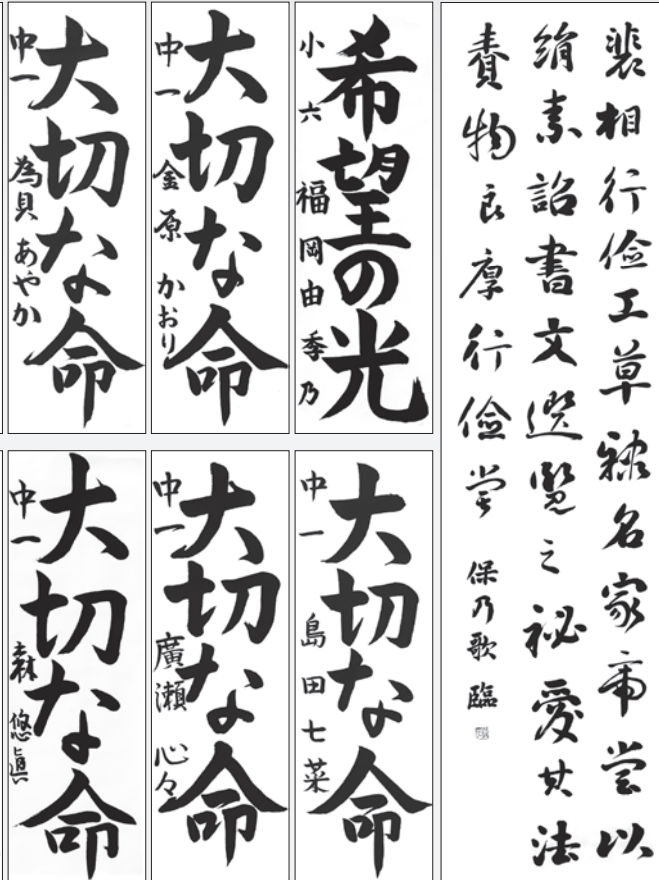 裴相行儉工草隷名家帝嘗以
絹素詔書文選覽之祕愛其法
賚物良厚行儉嘗 保乃歌 臨
希望の光
小六 福岡由季乃
大切な命
中一 金原 かおり
大切な命
中一 為貝 あやか
大切な命
中一 島田七菜
大切な命
中一 廣瀬 心々
大切な命
中一 森 悠眞